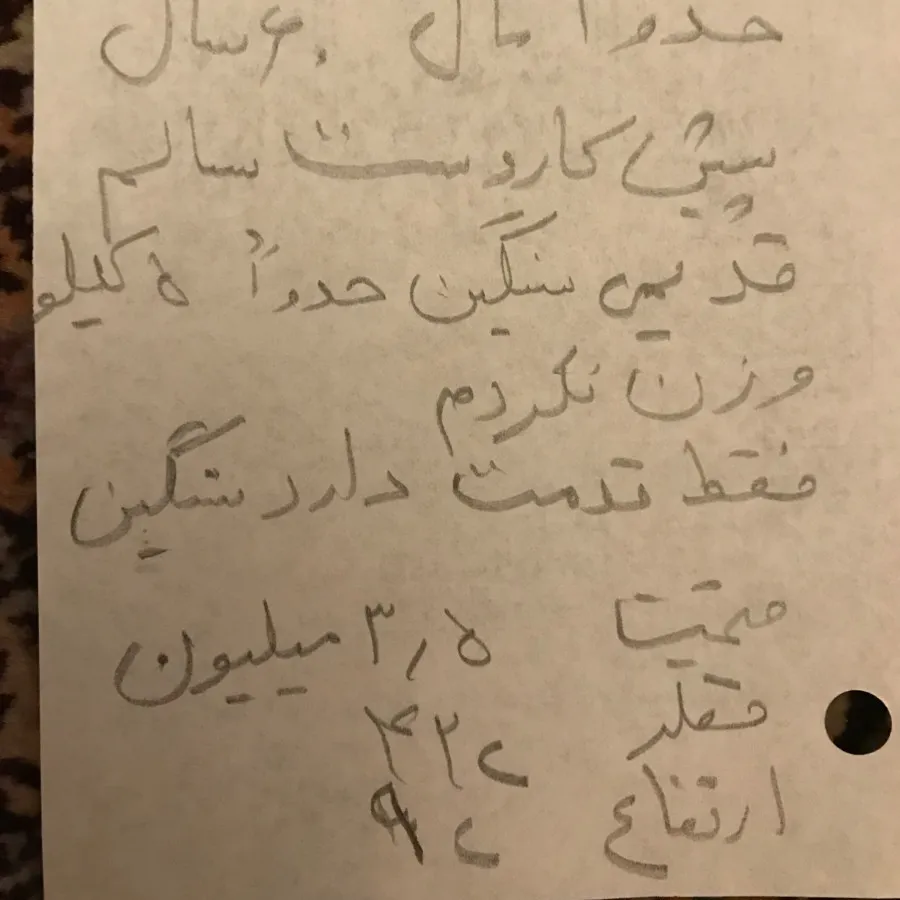 حدوداً مال ۶۰ سال
پیش کاردست سالم
قدیمی سنگین حدوداً ۵ کیلو
وزن نکردم
فقط قدمت دارد سنگین
قیمت ۳٫۵ میلیون
قطر
ارتفاع